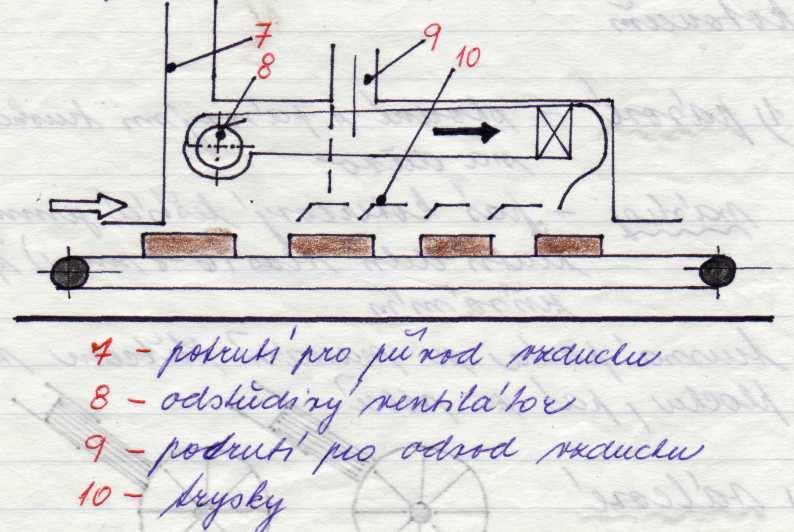 7
9
8
10
7 – potrubí pro přívod vzduchu
8 – odstředivý ventilátor
9 – potrubí pro odvod vzduchu
10 – trysky